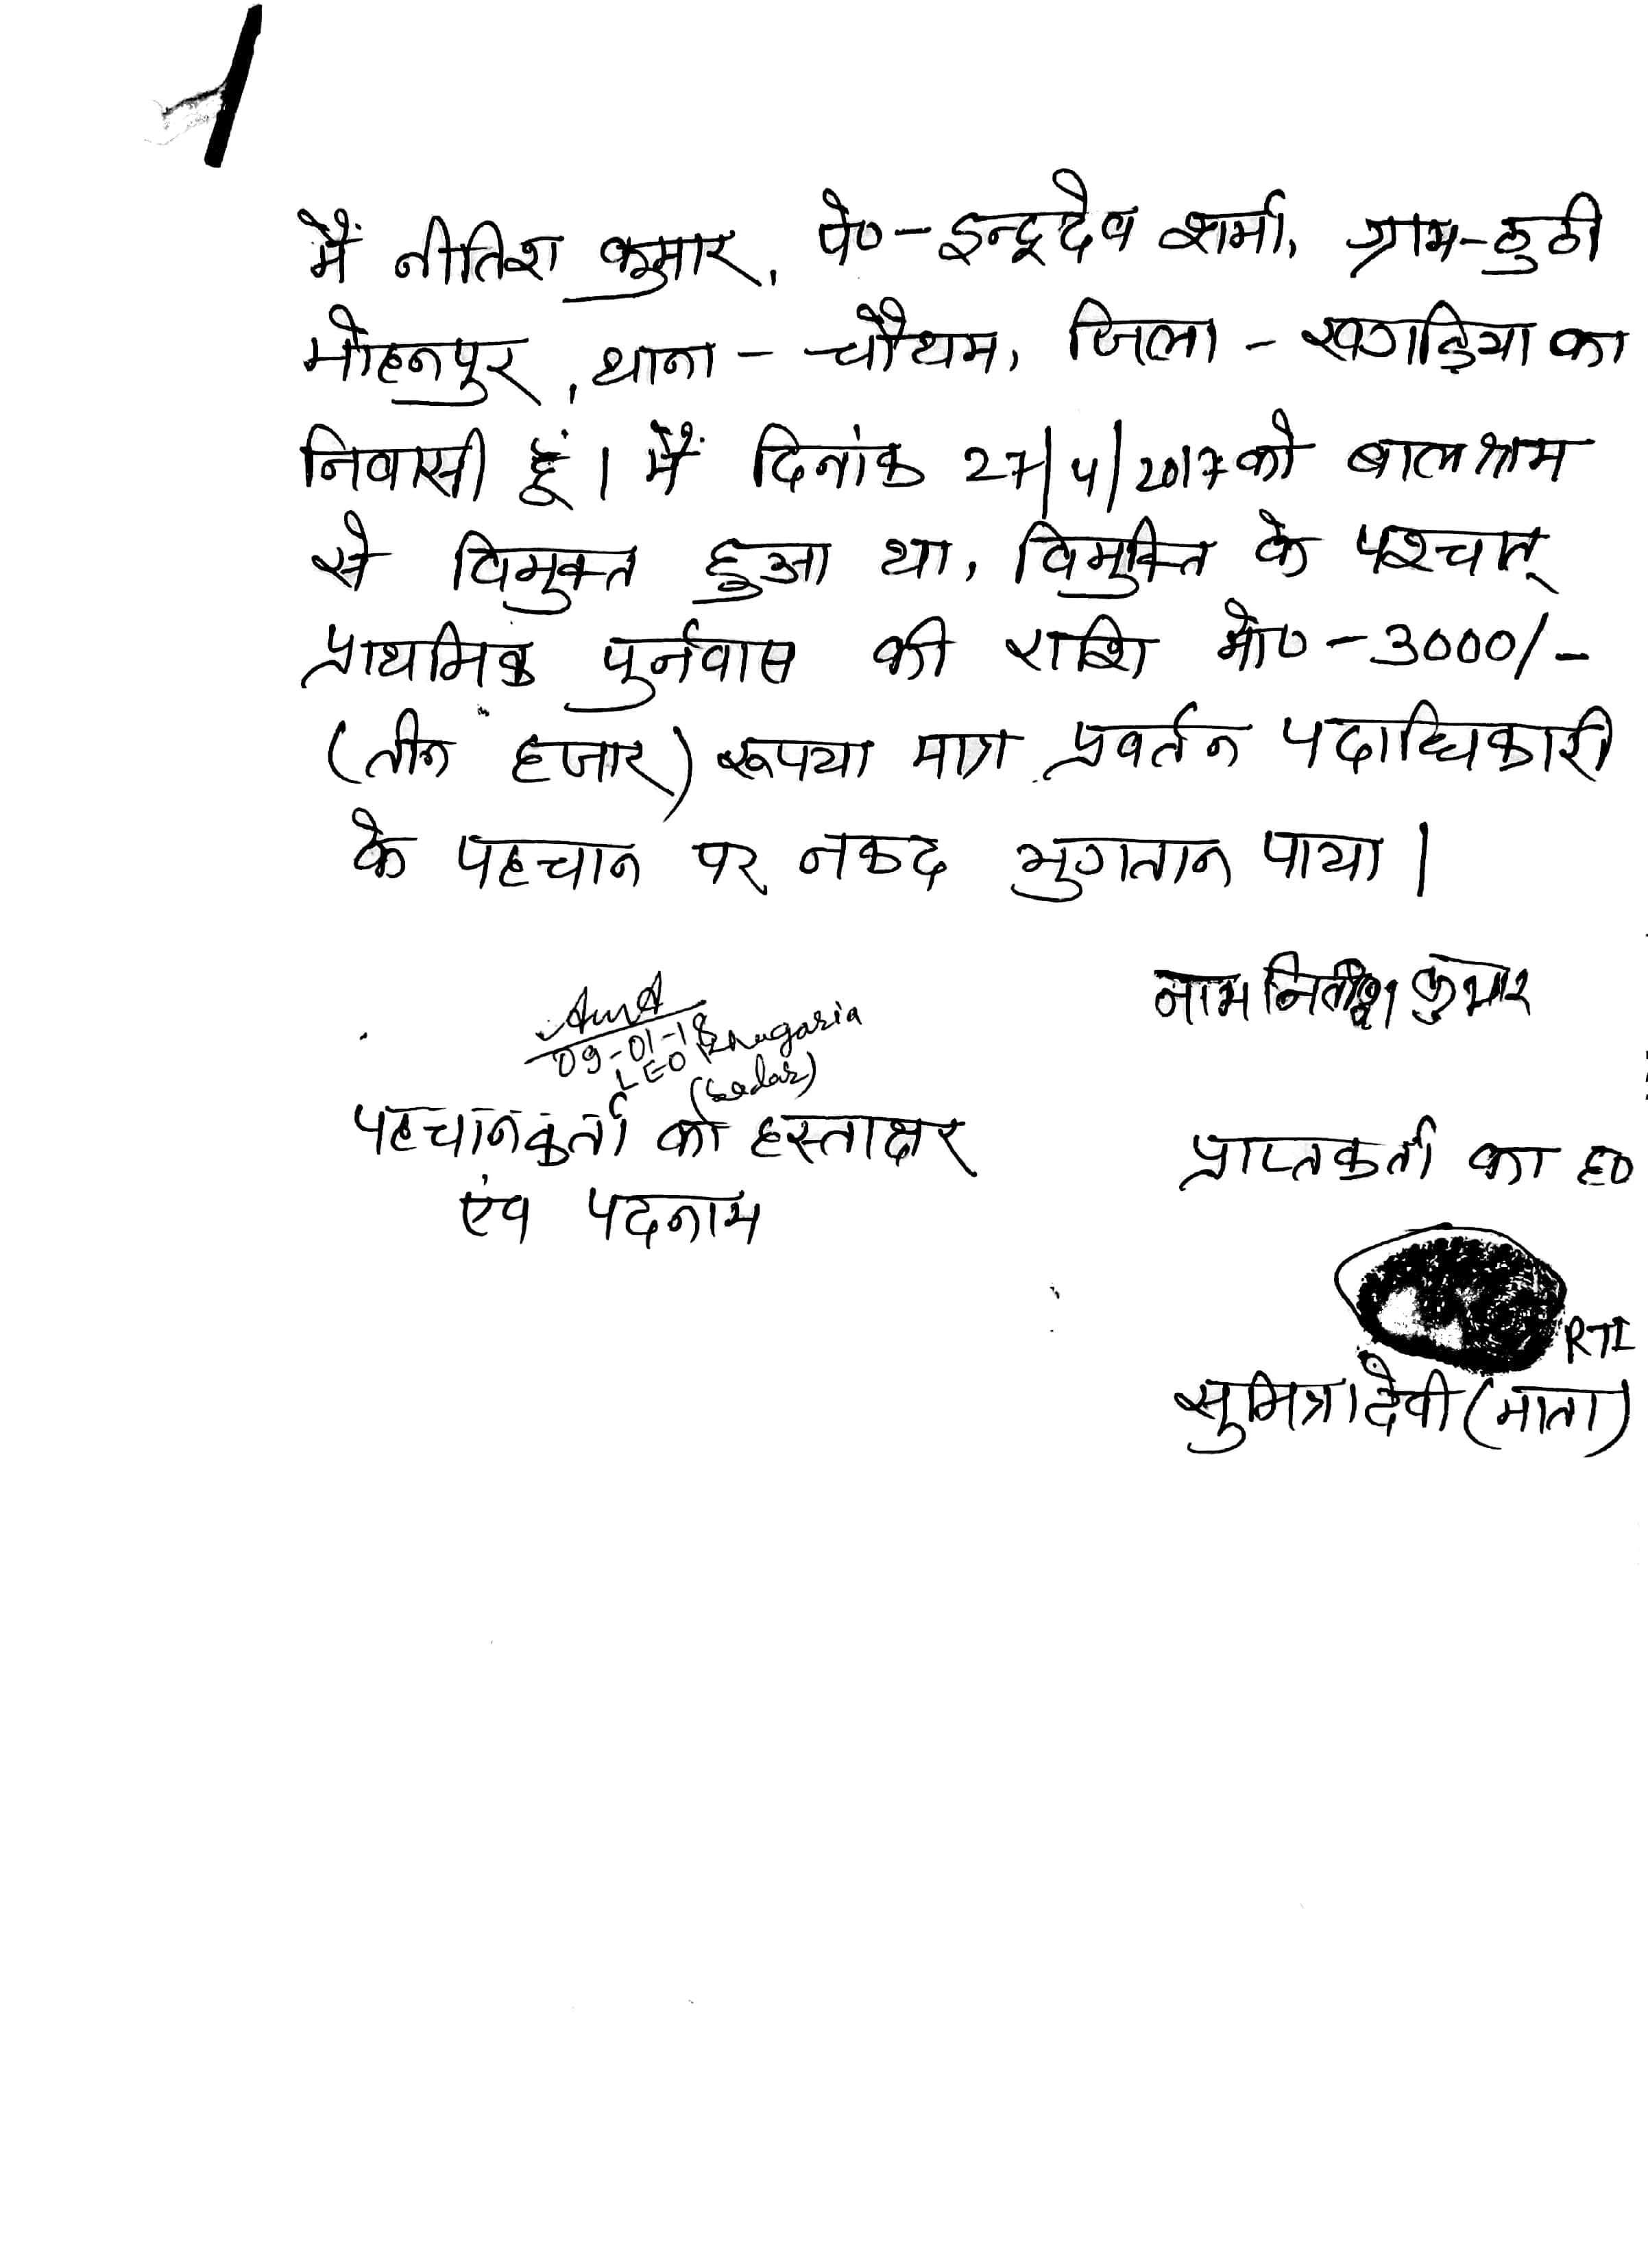 मैं नीतिश कुमार, पे०-इन्द्रदेव शर्मा, ग्राम-ठुठी
मोहनपुर, थाना - चौथम, जिला - खगड़िया का
निवासी हूं। मैं दिनांक 27/4/2017 को बालश्रम
से विमुक्त हुआ था, विमुक्ति के पश्चात्
प्राथमिक पुर्नवास की राशि मो०-3000/-
(तीन हजार) रूपया मात्र प्रवर्तन पदाधिकारी
के पहचान पर नकद भुगतान पाया।
नाम नितीश कुमार
09-01-18
LEO Khagaria
(Sadar)
पहचानकर्ता को हस्ताक्षर
एंव पदनाम
प्राप्तकर्ता का ह०
RTI
सुमित्रा देवी (माता)